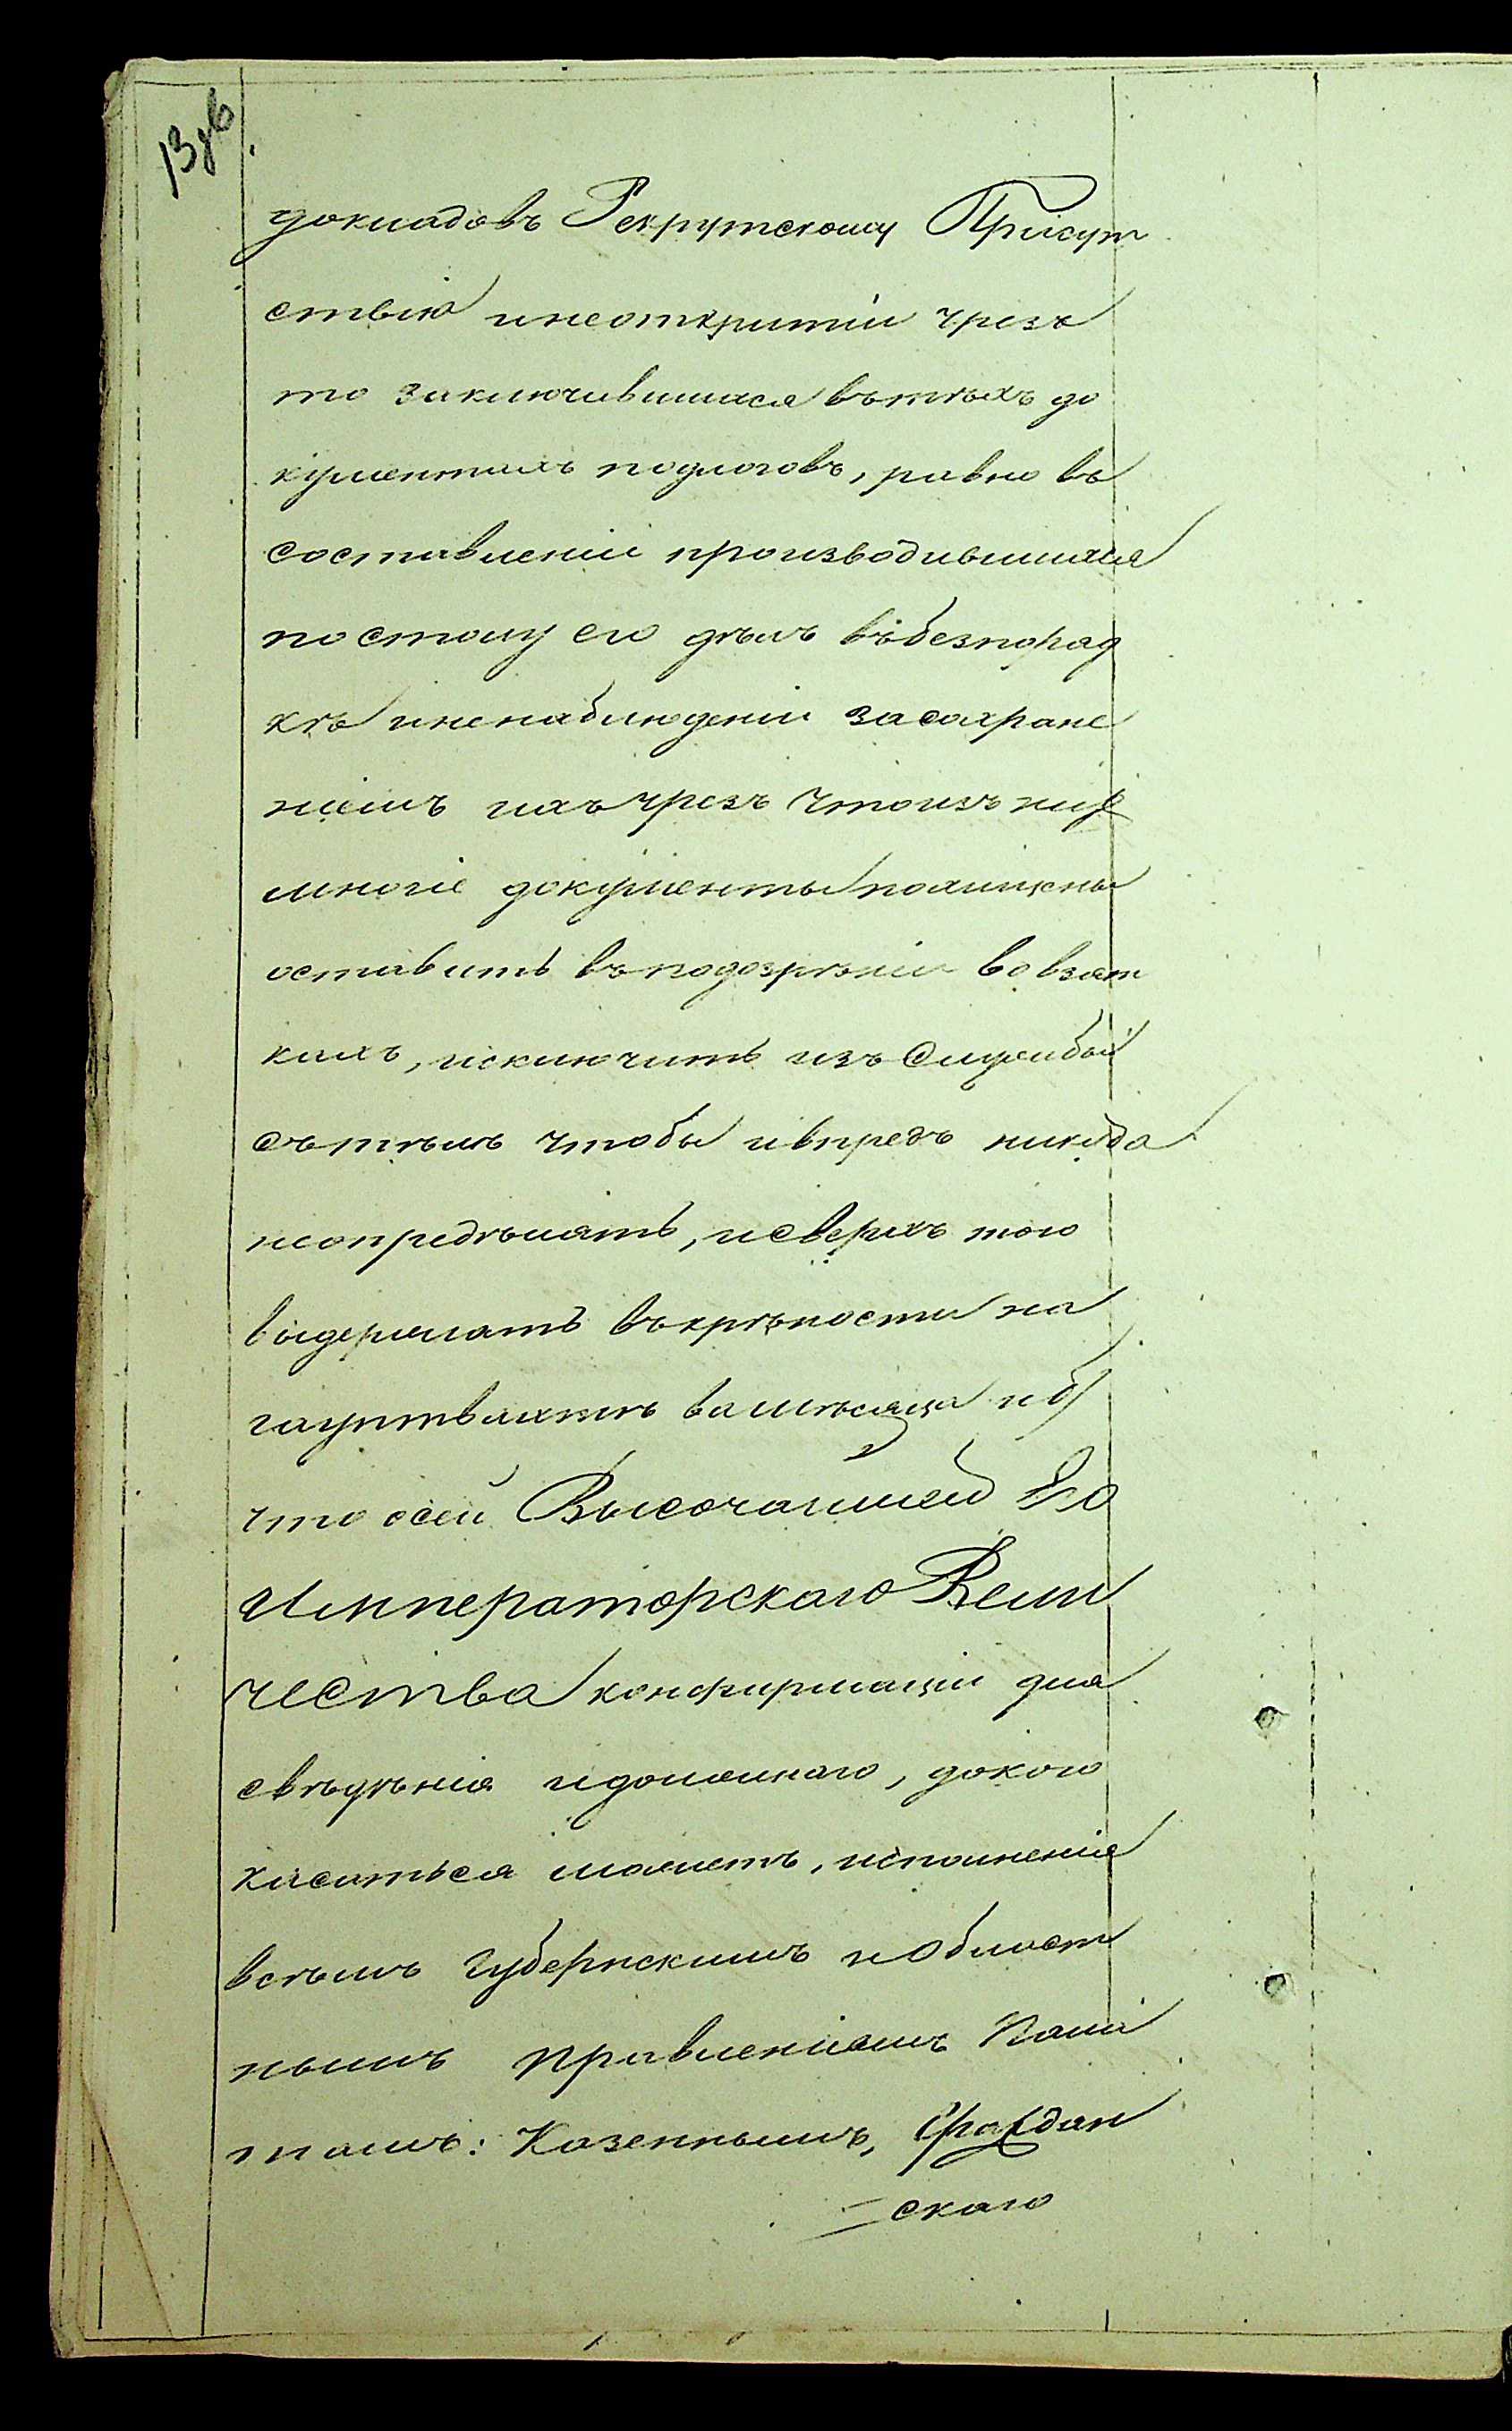 докладовъ Рекрутскому Присут
ствію инеоткритіи чрезъ
то заключившихся вътѣхъ до
кументахъ подлоговъ, равно въ
составленіи производившихся
постолу его дѣлъ въбезпоряд
кѣ иненаблюденіи засохране
ніемъ ихъ чрезъ чтоизъ нихъ
многіе документы похищены
оставить въподозрѣніи вовзят
кахъ, исключить изъ службы
сътѣмъ чтобы ивпредъ никуда
неопредѣлять, исверхъ того
выдержать въкрѣпости на
гауптвахтѣ
что осей Высочайшей Его
Императорскаго Вели
чества конфирмаціи для
свѣдѣнія идолжнаго, докого
касаться можетъ, исполненія
всѣмъ Губернскимъ иОбласт
нымъ правленіямъ Пала
тамъ: Казеннымъ, Граждан
скаго